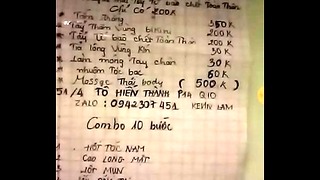 Tẩy tế bào chết toàn thân
Giá có 200K
Triệt lông 350K
Tẩy thâm vùng bikini 200K
Tẩy tế bào chết toàn thân 200K
Tỉa lông vùng kín 30K
Làm móng tay chân 30K
nhuộm tóc bạc 60K
Massge Thái body (500K)
51/4 TÔ HIẾN THÀNH P14 Q10
ZALO: 0942307451 KEVIN LAM
Combo 10 bước
HỚT TÓC NAM
CẠO LÔNG MẶT
LỘT MỤN